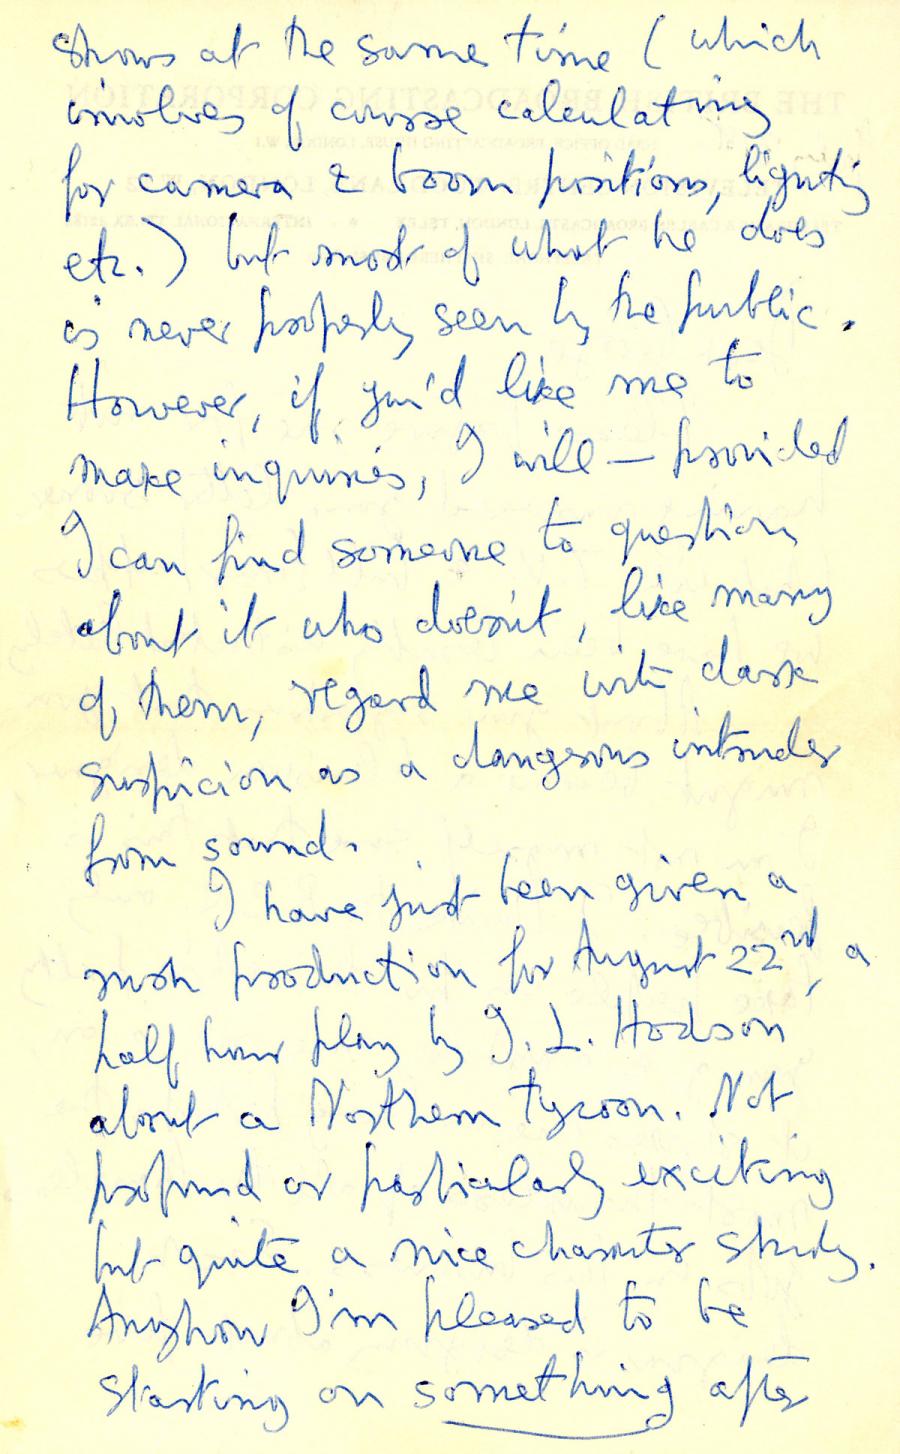 shows at the same time (which
involves of course calculating
for camera & boom positions, lighting
etc.) but most of what he does
is never properly seen by the public.
However, if you'd like me to
make inquiries, I will — provided
I can find someone to question
about it who doesn't, like many
of them, regard me with dark
suspicion as a dangerous intruder
from sound.
I have just been given a
rush production for August 22nd, a
half hour play by J. L. Hodson
about a Northern tycoon. Not
profound or particularly exciting
but quite a nice character study.
Anyhow I'm pleased to be
starting on something after